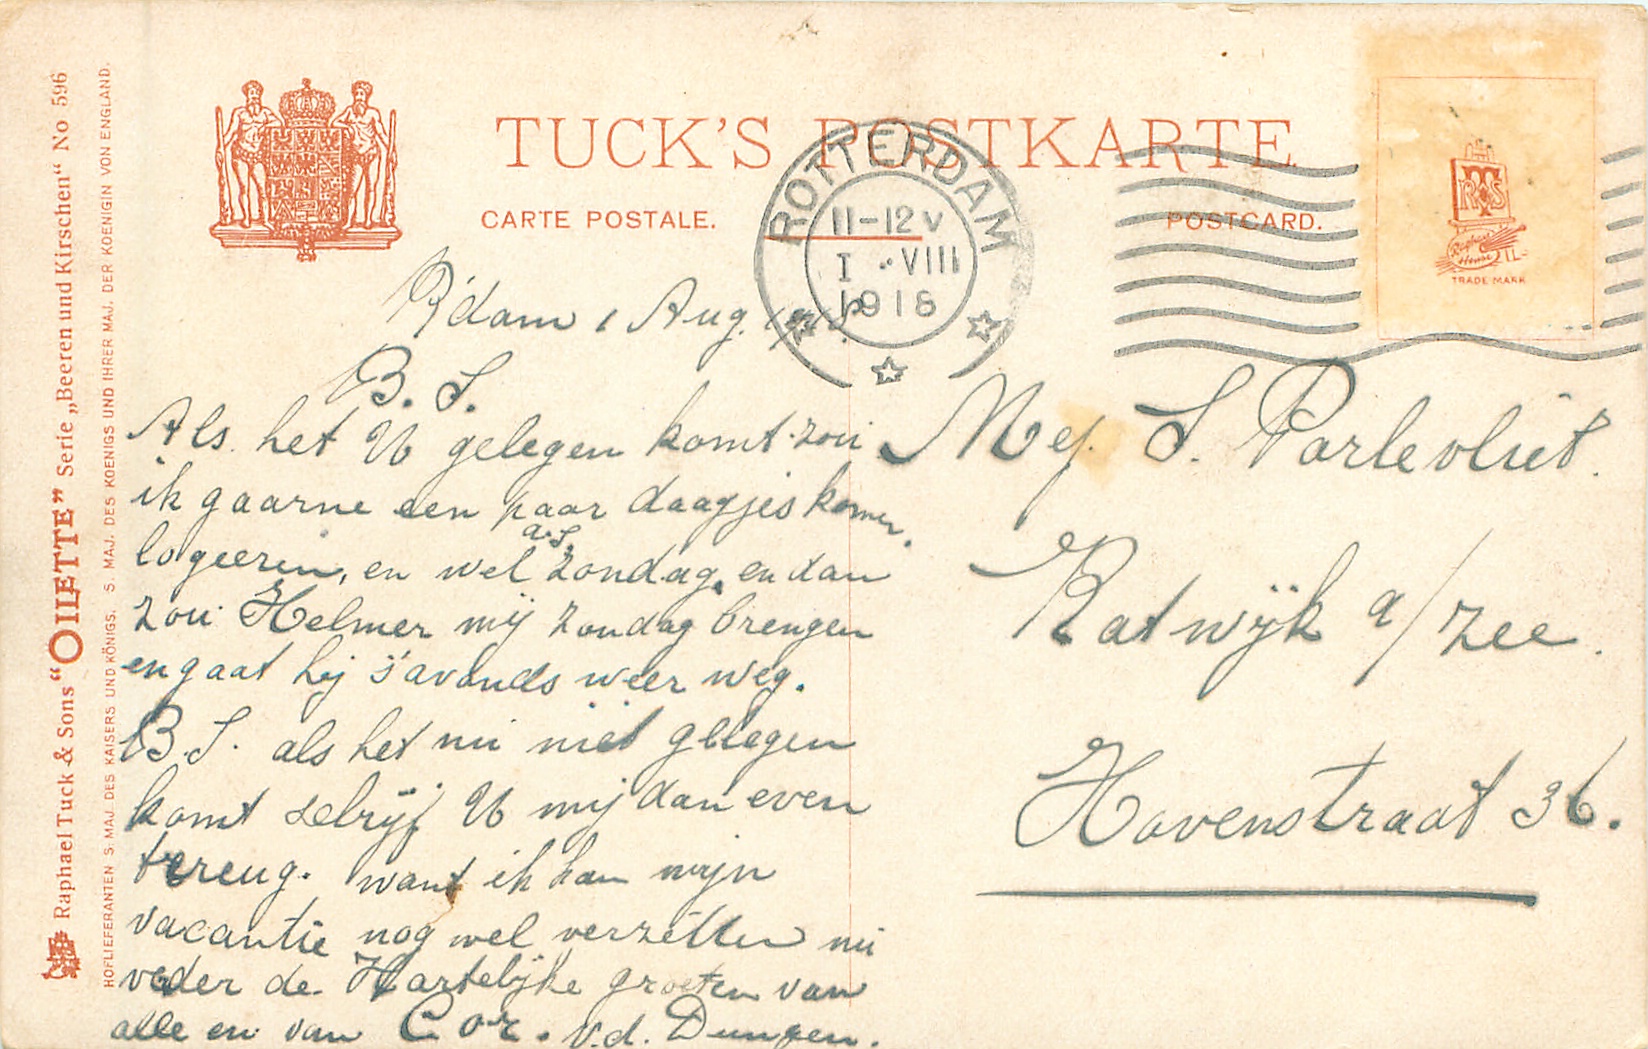 TUCK'S POSTKARTE.
CARTE POSTALE.
POSTCARD.
ROTTERDAM
11-12 V
I ·VIII
1918
R T S
Raphael House
TRADE MARK
R'dam 1 Aug. 1918.
B. S.
Als het U gelegen komt zou
ik gaarne een paar daagjes komen
logeeren, en wel a.s. Zondag, en dan
zou Helmer mij Zondag brengen
en gaat hij s'avonds weer weg.
B. S. als het nu niet gelegen
komt schrijf U mij dan even
tereug. want ik kan mijn
vacantie nog wel verzetten nu
veder de Hartelijke groeten van
alle en van Cor. v.d. Dungen.
Mej. S. Parlevliet.
Katwijk a/Zee.
Havenstraat 36.
Raphael Tuck & Sons "OILETTE" Serie „Beeren und Kirschen" No 596
HOFLIEFERANTEN S. MAJ. DES KAISERS UND KÖNIGS. S. MAJ. DES KOENIGS UND IHRER MAJ. DER KOENIGIN VON ENGLAND.